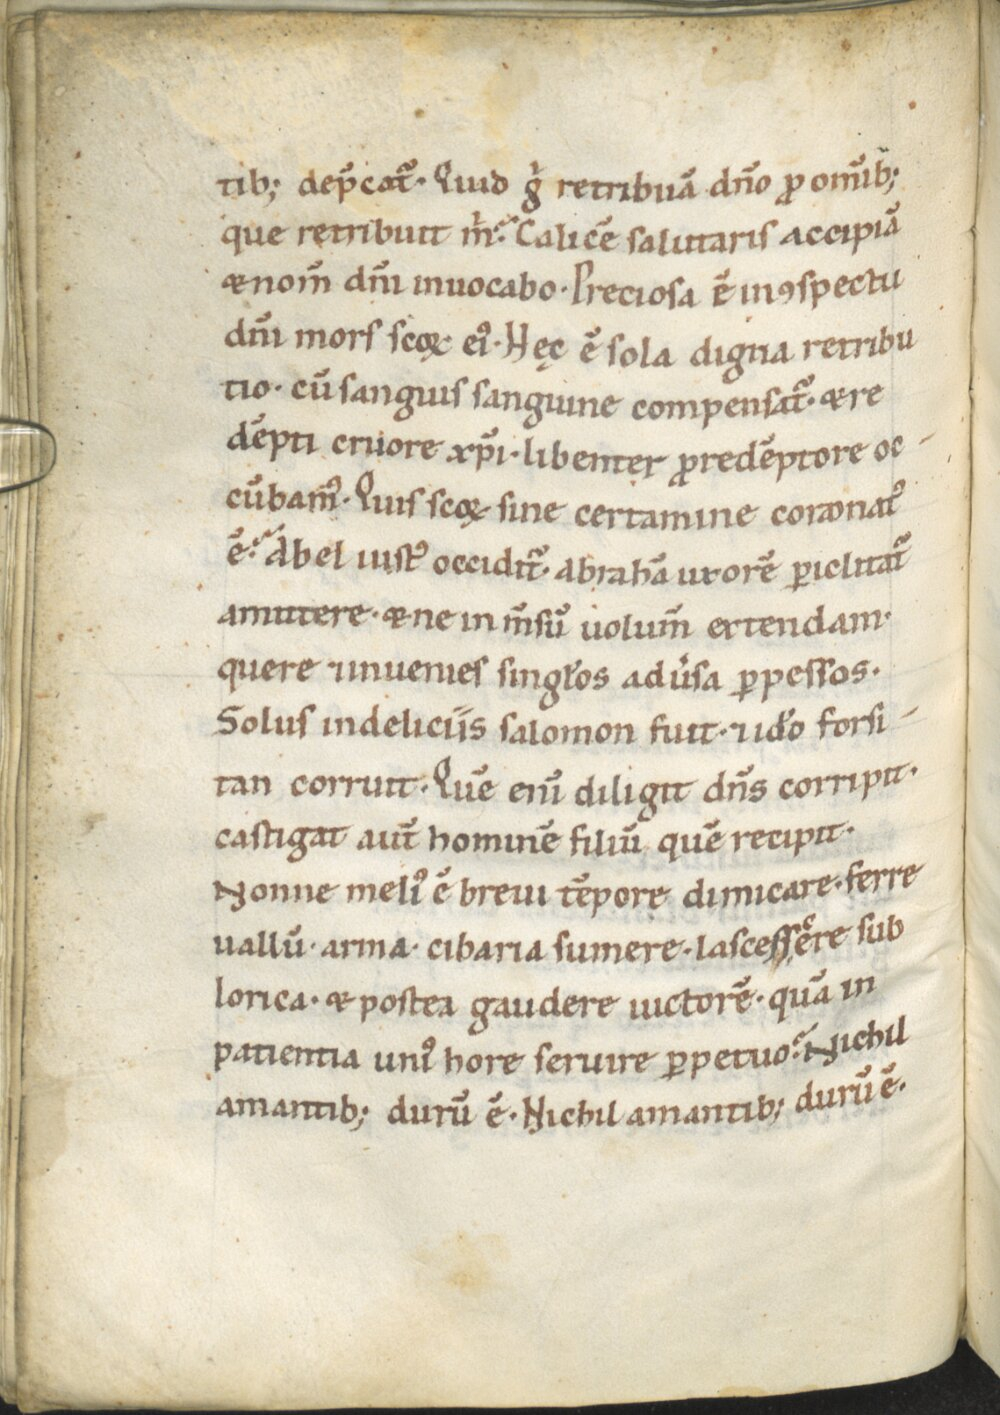 tib; dep̄cat᷑. Quid g̊ retribuā dn̄o ꝓ om̄ib;
que retribuit m̄? Calicē salutaris accipiā
& nom̄ dn̄i inuocabo. Preciosa ē in ꝯspectu
dn̄i mors scōꝝ eiꝰ. Hęc ē sola digna retribu
tio. cū sanguis sanguine compensat᷑. & re
dēpti cruore xp̄i. libenter ꝓ redēptore oc-
cūbamꝰ. Quis scōꝝ sine certamine coronatꝰ
ē? Abel iustꝰ occidit᷑. abrahā uxorē ꝑiclitat᷑
amittere. & ne in m̄sū uolum̄ extendam.
quere ⁊ inuenies singl̄os aduͥsa ꝑpessos.
Solus in deliciis salomon fuit. ⁊ id̄o forsi-
tan corruit. Quē enī diligit dn̄s corripit.
castigat aut̄ hominē filiū quē recipit.
Nonne meliꝰ ē breui tēpore dimicare. ferre
uallū. arma. cibaria sumere. lascessēre sub
lorica. & postea gaudere uictorē. quā in
patientia uniꝰ hore seruire ꝑpetuo? Nichil
amantib; durū ē. Nichil amantib; durū ē.